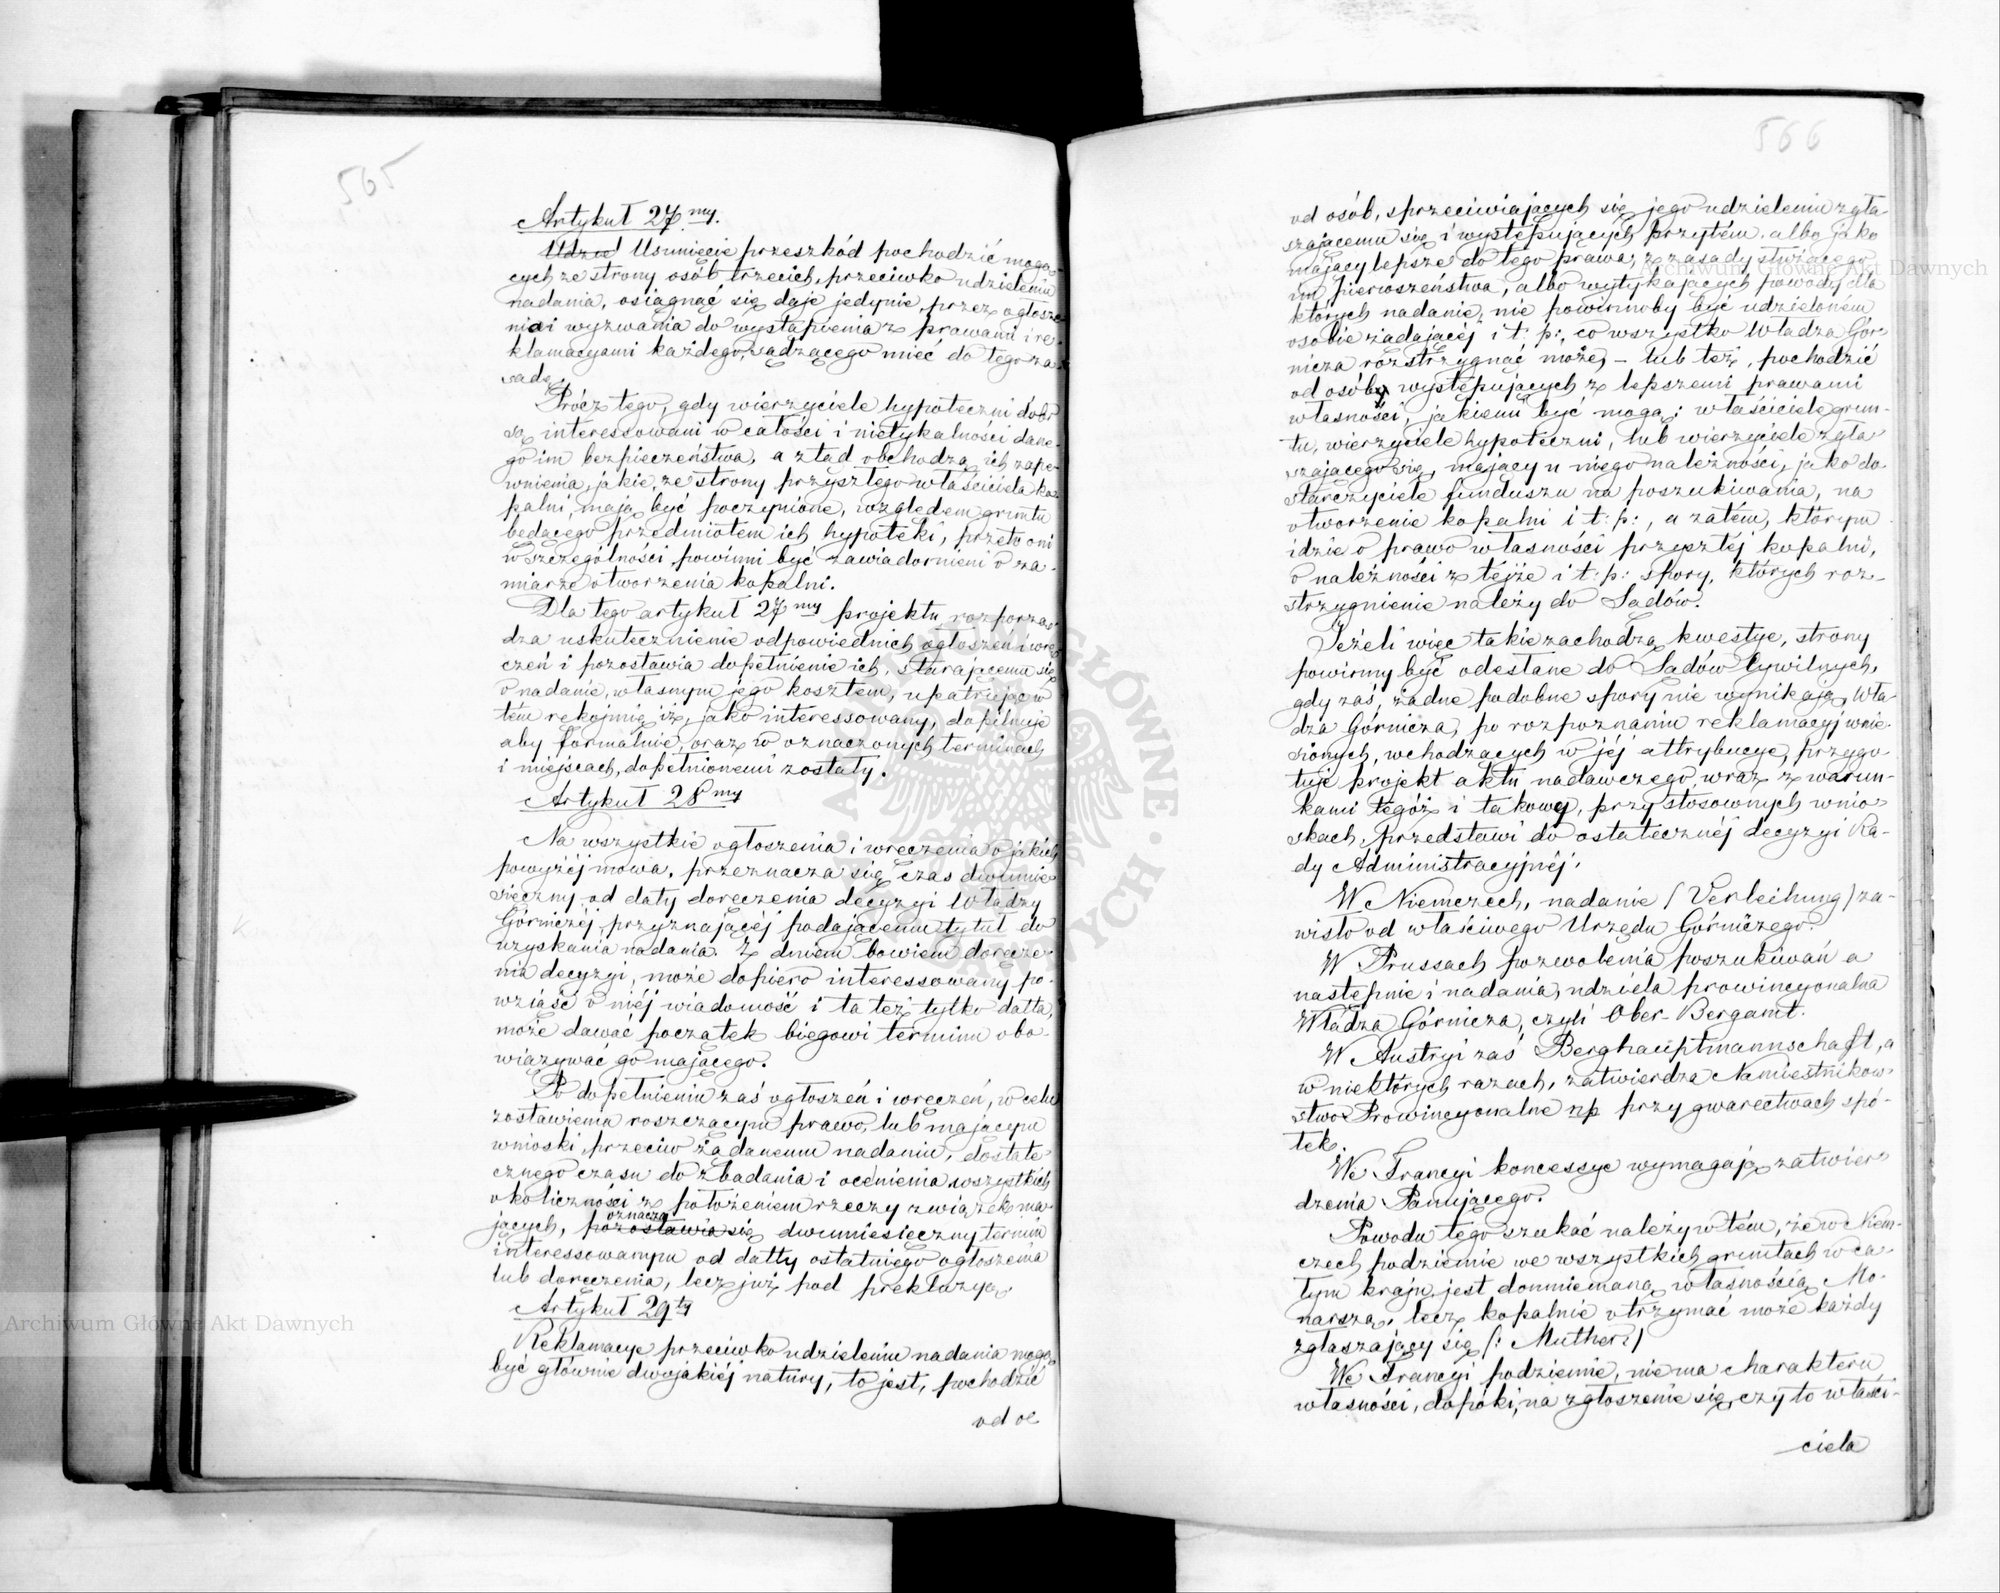 565
Artykuł 27my.
Udziel Usunięcie przeszkód pochodzić mogą-
cych ze strony osób trzecich, przeciwko udzieleniu
nadania, osiągnąć się daje jedynie, przez ogłosze-
nia i wyzwania do wystąpienia z prawami i re-
klamacyami każdego, sądzącego mieć do tego za-
sadę.
Prócz tego, gdy wierzyciele hypoteczni dóbr
są interessowani w całości i nietykalności dane-
go im bezpieczeństwa, a ztąd obchodzą ich zape-
wnienia, jakie, ze strony przyszłego właściciela ko-
palni, mają być poczynione, względem gruntu
będącego przedmiotem ich hypoteki, przeto oni
w szczególności powinni być zawiadomieni o za-
miarze otworzenia kopalni.
Dla tego artykuł 27my projektu, rozporzą-
dza uskutecznienie odpowiednich ogłoszeń i wrę-
czeń i pozostawia dopełnienie ich, starającemu się
o nadanie, własnym jego kosztem, upatrując w
tém rękojmię iż, jako interessowany, dopilnuje
aby formalnie, oraz w oznaczonych terminach
i miejscach, dopełnionemi zostały.
Artykuł 28my
Na wszystkie ogłoszenia i wręczenia o jakich
powyżéj mowa, przeznacza się czas dwumie-
sięczny od daty doręczenia decyzyi Władzy
Górniczéj, przyznającéj podającemu tytuł do
uzyskania nadania. Z dniem bowiem doręcze-
nia decyzyi, może dopiero interessowany po-
wziąść o niéj wiadomość i ta też tylko datta,
może dawać początek biegowi terminu obo-
wiązywać go mającego.
Po dopełnieniu zaś ogłoszeń i wręczeń, w celu
zostawienia roszczącym prawo, lub mającym
wnioski przeciw żądanemu nadaniu, dostate-
cznego czasu do zbadania i ocenienia wszystkich
okoliczności z położeniem rzeczy związek ma-
oznacza
jących, pozostawia się dwumiesięczny termin
interessowanym od datty ostatniego ogłoszenia
lub doręczenia, lecz już pod prekluzyą.
Artykuł 29ty
Reklamacye przeciwko udzieleniu nadania mogą
być głównie dwojakiéj natury, to jest, pochodzić
od os
566
od osób, sprzeciwiających się jego udzieleniu zgła-
szającemu się i występujących przytém, albo jako
mający lepsze do tego prawa, z zasady służącego
im pierwszeństwa, albo wytykających powody dla
których nadanie, nie powinnoby być udzieloném
osobie żądającéj i t. p:, co wszystko Władza Gór-
nicza rozstrzygnąć może, – lub też, pochodzić
od osób, występujących z lepszemi prawami
własności, jakiemi być mogą: właściciele grun-
tu, wierzyciele hypoteczni, lub wierzyciele zgła-
szającego się, mający u niego należności, jako do-
starczyciele funduszu na poszukiwania, na
otworzenie kopalni i t: p:, a zatém, którym
idzie o prawo własności przyszłéj kopalni,
o należności z téjże i t: p: spory, których roz-
strzygnienie należy do Sądów.
Jeżeli więc takie zachodzą kwestye, strony
powinny być odesłane do Sądów Cywilnych,
gdy zaś, żadne podobne spory nie wynikają, Wła-
dza Górnicza, po rozpoznaniu reklamacyj wnie-
sionych, wchodzących w jéj attrybucye, przygo-
tuje projekt aktu nadawczego wraz z warun-
kami tegóż i takowy, przy stosownych wnio-
skach, przedstawi do ostatecznéj decyzyi Ra-
dy Administracyjnéj.
W Niemczech, nadanie / Verleihung / za-
wisło od właściwego Urzędu Górniczego.
W Prussach pozwolenia poszukiwań a
następnie i nadania, udziela prowincyonalna
Władza Górnicza, czyli Ober-Bergamt.
W Austryi zaś Berghauptmannschaft, a
w niektórych razach, zatwierdza Namiestnikow-
stwo Prowincyonalne np przy gwarectwach spó-
łek.
We Francyi koncessye wymagają zatwier-
dzenia Panującego.
Powodu tego szukać należy w tém, że w Niem-
czech podziemie we wszystkich gruntach w ca-
łym kraju jest domniemaną własnością Mo-
narszą, lecz kopalnie otrzymać może każdy
zgłaszający się /: Muther :/
We Francyi podziemie, nie ma charakteru
własności, dopóki, na zgłoszenie się, czy to właści-
ciela
Archiwum Główne Akt Dawnych
Archiwum Główne Akt Dawnych